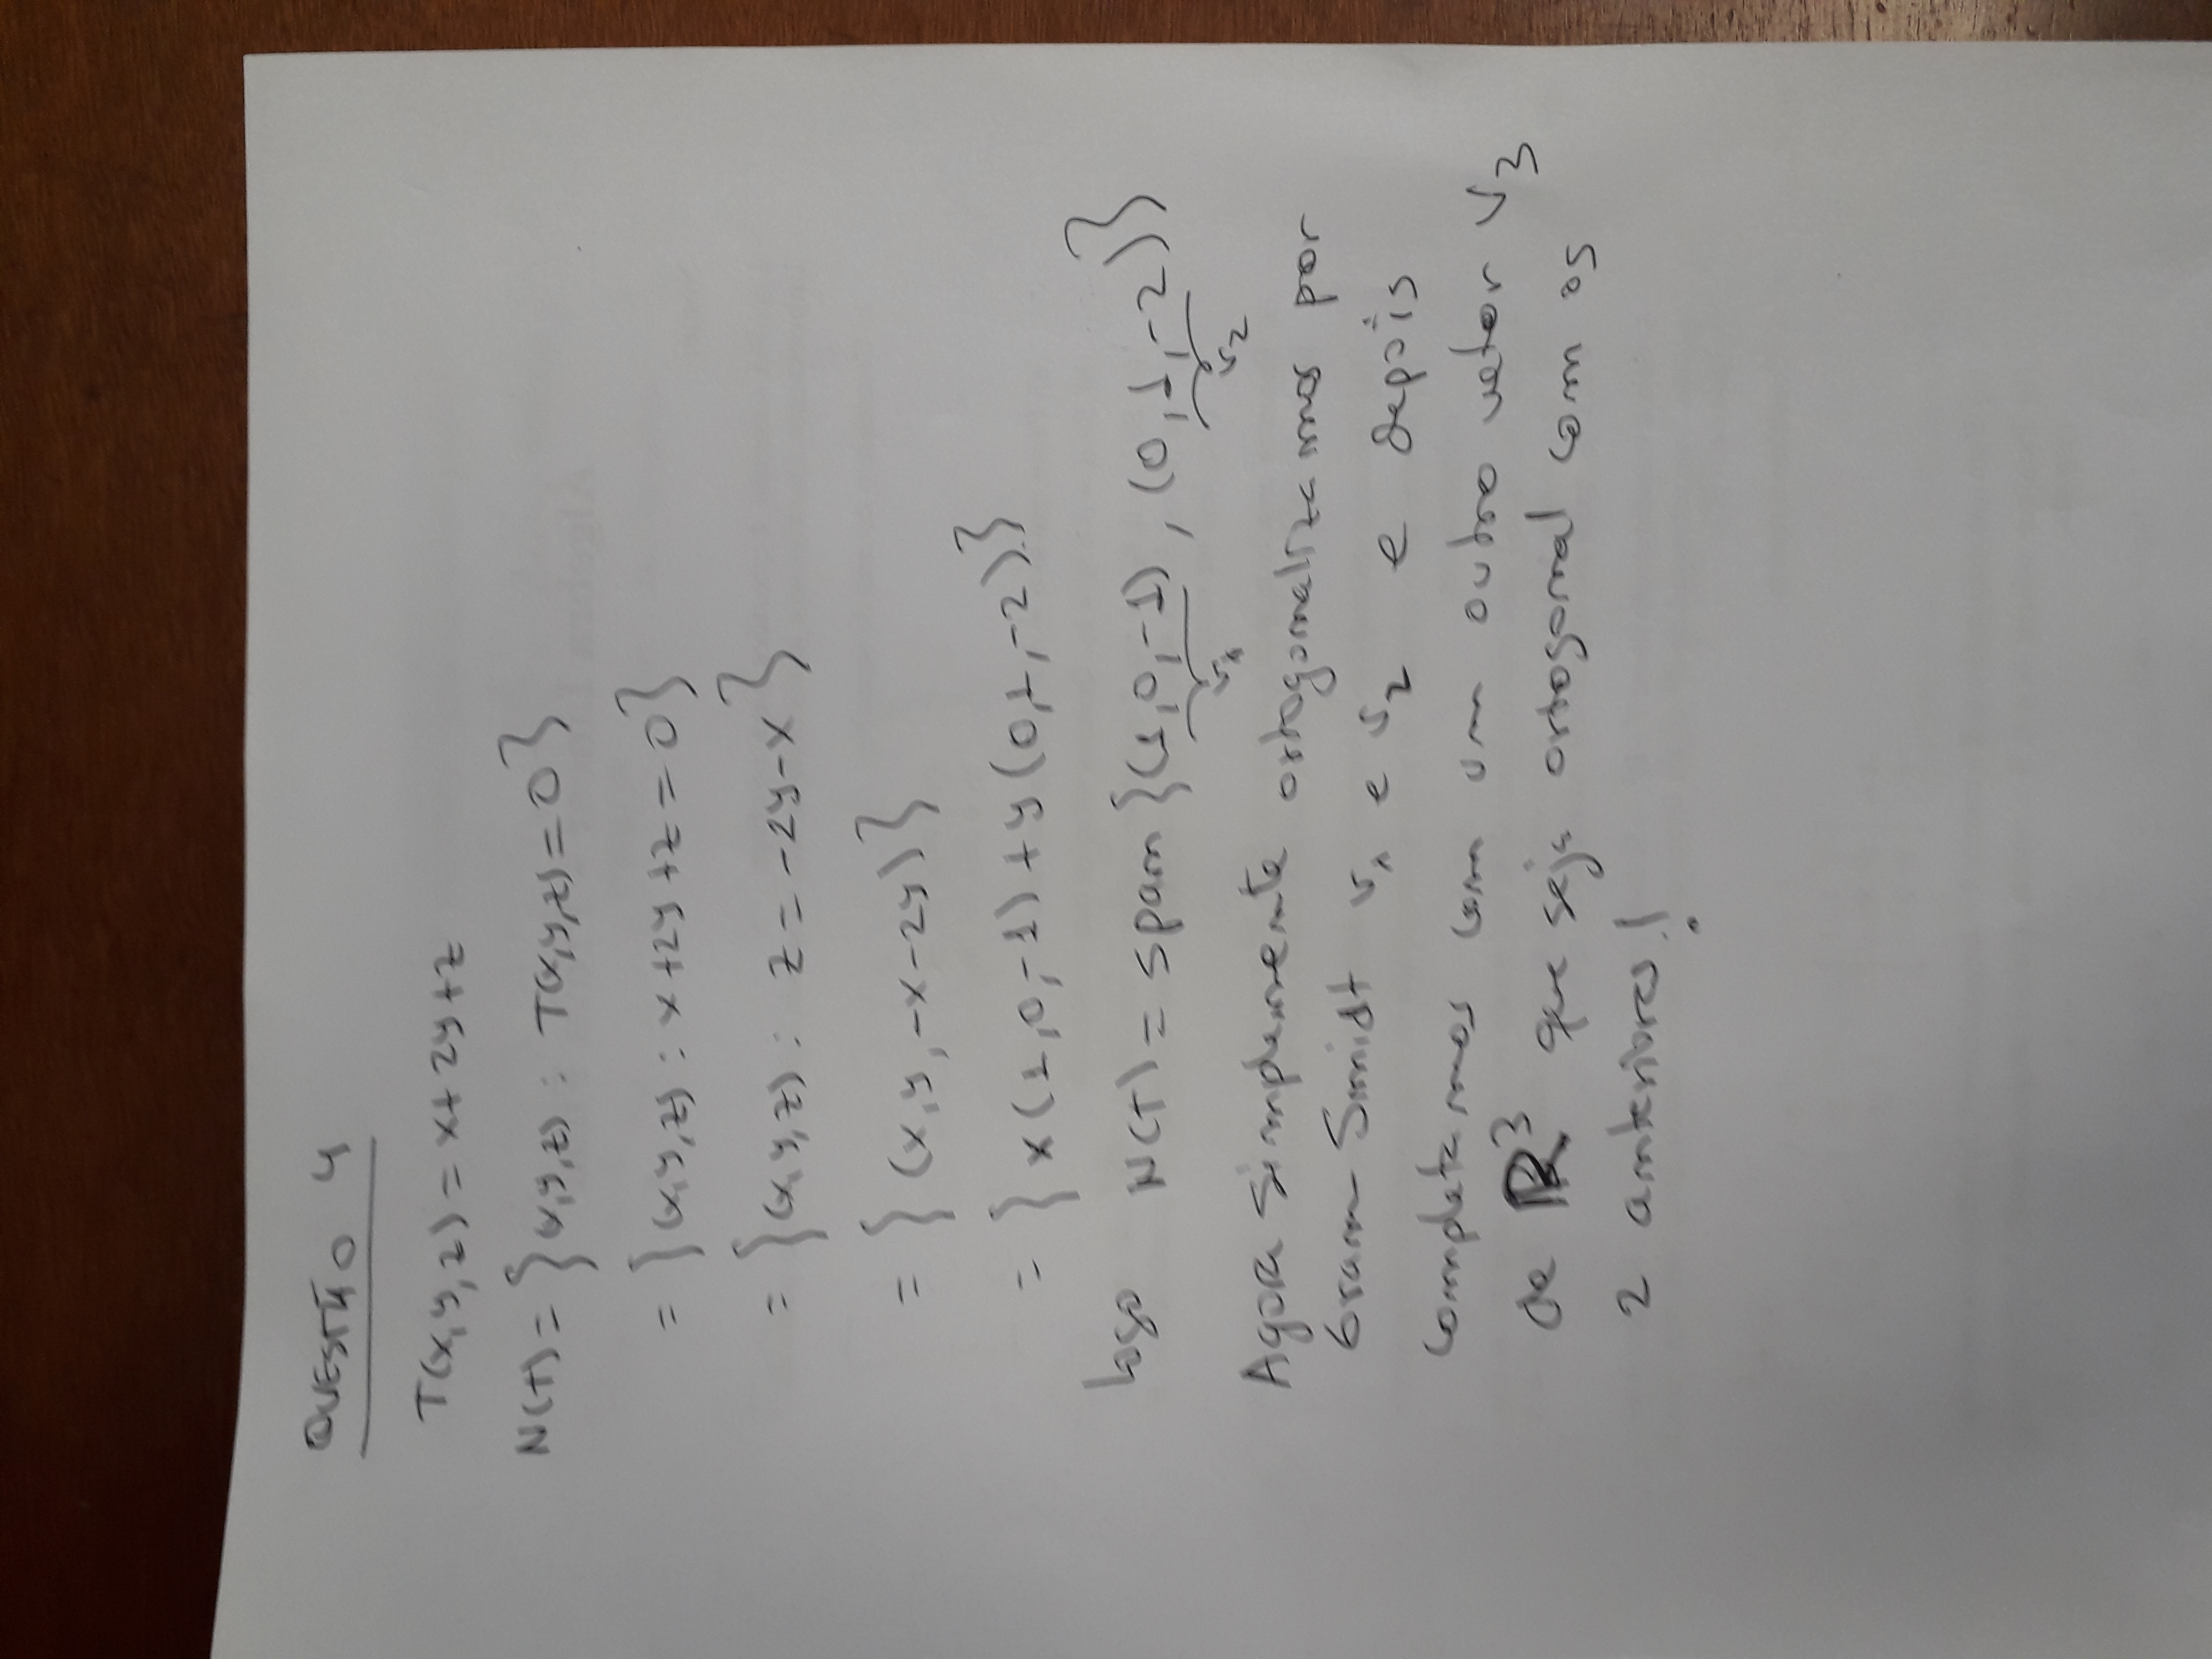 QUESTÃO 4
T(x,y,z) = x+2y+z
N(T) = {(x,y,z) : T(x,y,z)=0}
= {(x,y,z) : x+2y+z=0}
= {(x,y,z) : z=-2y-x}
= {(x,y,-x-2y)}
= {x(1,0,-1)+y(0,1,-2)}
Logo N(T) = span {(1,0,-1), (0,1,-2)}
v1 v2
Agora simplesmente ortogonalizamos por
Gram-Smidt v1 e v2 e depois
completamos com um outro vetor v3
de R³ que seja ortogonal com os
2 anteriores!